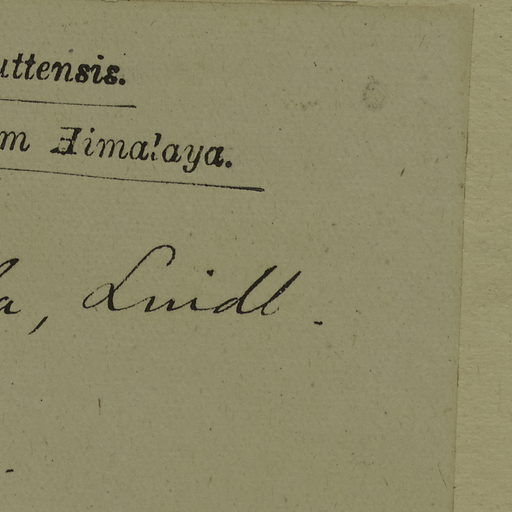 uttensis.
m Himalaya.
a, Lindl.